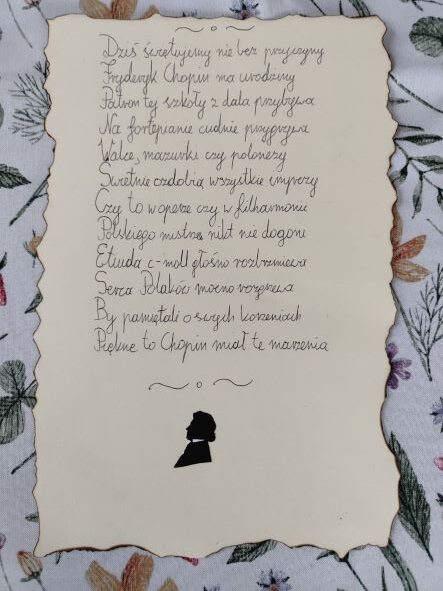 Dziś świętujemy nie bez przyczyny
Fryderyk Chopin ma urodziny
Patron tej szkoły z dala przybywa
Na fortepianie cudnie przygrywa
Walce, mazurki czy polonezy
Świetnie ozdobią wszystkie imprezy
Czy to w operze czy w filharmonii
Polskiego mistrza nikt nie dogoni
Etiuda c-moll głośno rozbrzmiewa
Serca Polaków mocno rozgrzewa
By pamiętali o swych korzeniach
Piękne to Chopin miał te marzenia